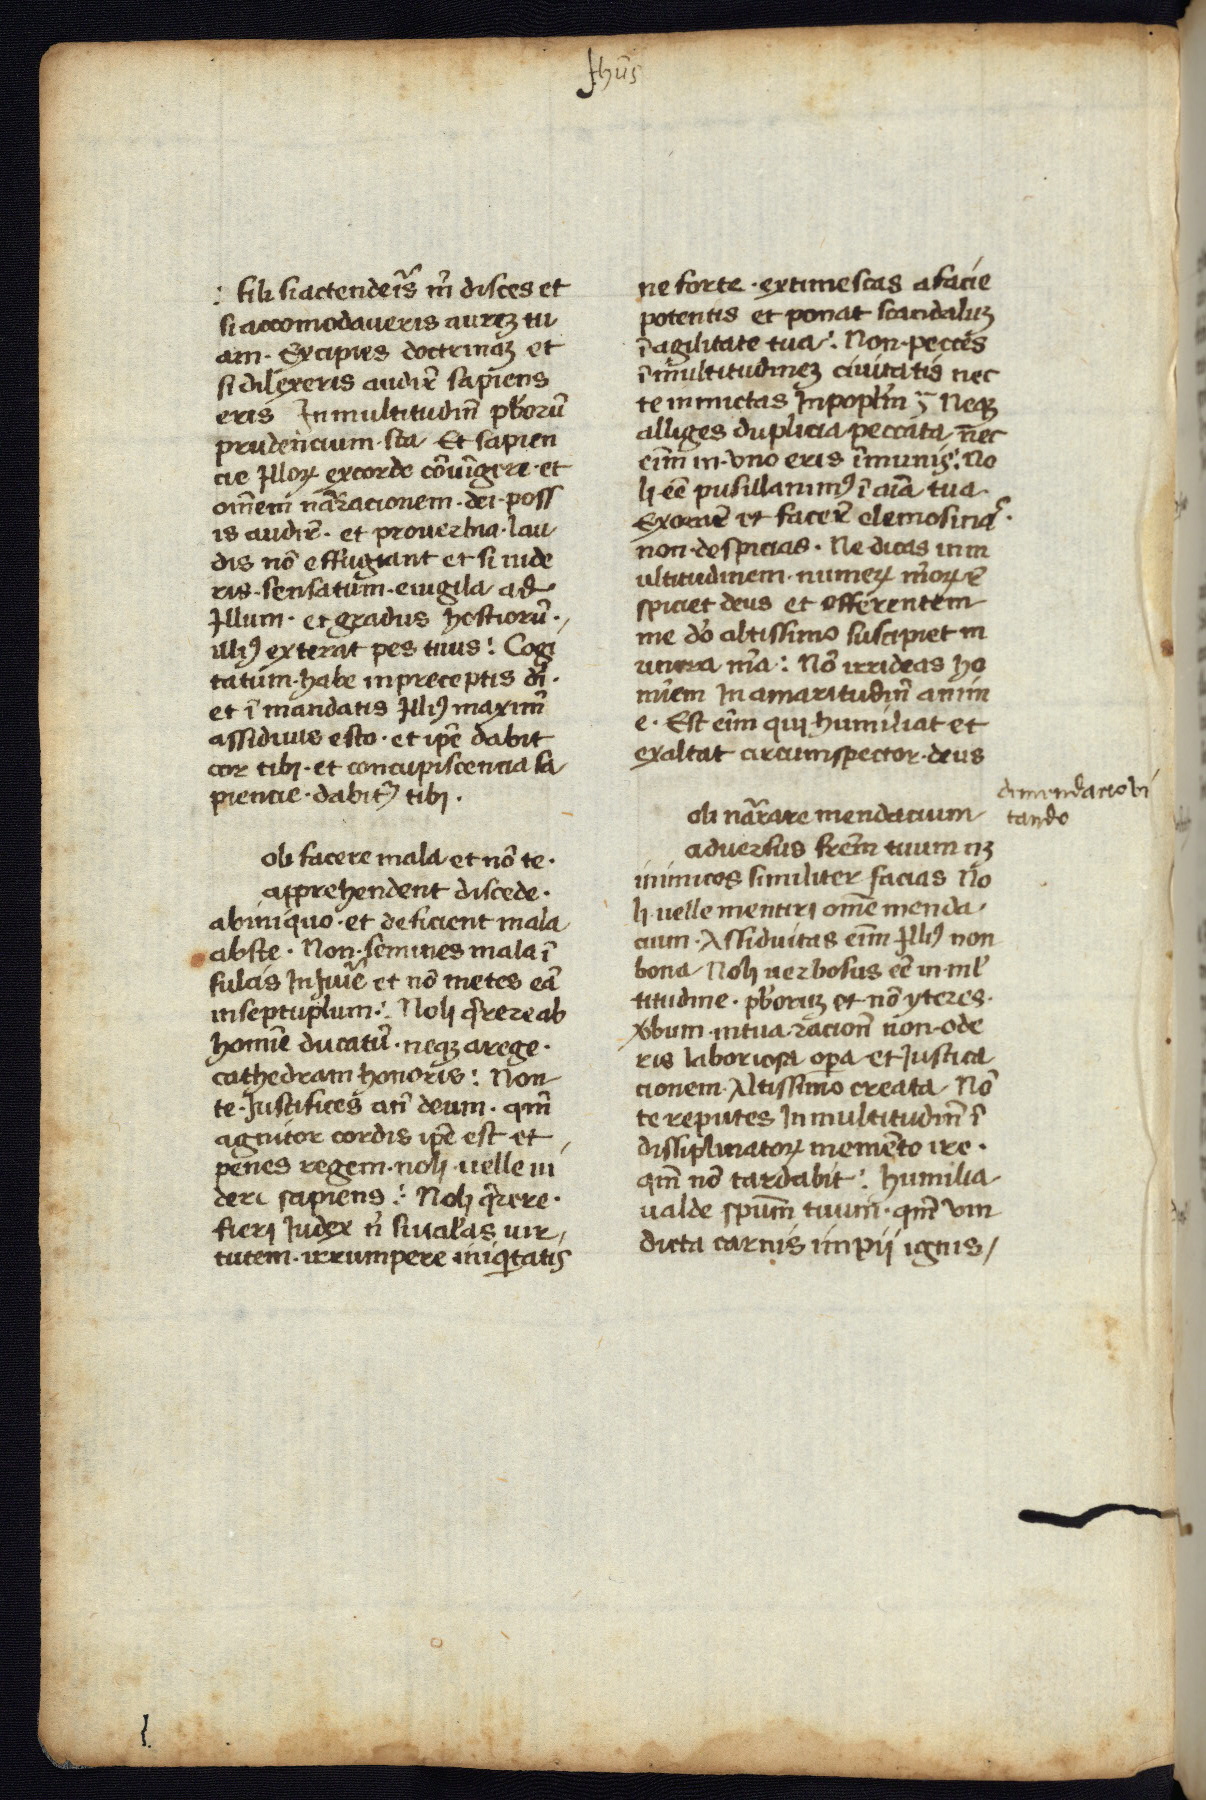 Jhūs
: fili si actenderīs m̄ disces et
si accomodaveris aurēꝫ tu
am · Excipies doctrinaꝫ et
si dilexeris audir̄ sapiens
eris In multitudin̄ pb̄orū
prudencium · sta Et sapien
cie Jlloꝝ excorde cōvīgere · et
om̄em nar̄racionem · dei · poss
is audir̄ · et proverbia · lau
dis nō effugiant et si vide
ris · sensatum · evigila ad
Jllum · et gradus hostiorū ·
illiꝰ exterat pes tuus : Cogi
tatum · habe in preceptis dī ·
et ī mandatis Jlliꝰ maxim̄
assiduus esto · et ip̄e dabit
cor tibj · et concupiscencia sa
piencie · dabitᷣ tibj ·
oli facere mala et nō te ·
apprehendent discede ·
ab iniquo · et deficient mala
abs te · Non · semines mala ī
sulcis In Juīe et nō metes eā
in septuplum : Nolj q̄rere ab
homīe ducatū · neqꝫ a rege ·
cathedram honoris : Non
te · Justifices an̄ deum · qm̄
agnitor cordis ip̄e est et
penes regem · nolj velle vi
deri sapiens : Nolj q̄rere ·
fierj Judex n̄ si val̄as vir
tutem · irrumpere iniq̄tatis
ne forte · extimescas a facie
potentis et ponat scandaluꝫ
ī agilitate tua : Non · pecces
ī multitudineꝫ civitatis nec
te inmictas In popl̄m ⁊ Neqꝫ
alliges duplicia peccata nec
eīm in · vno eris īmunis : No
lj eē pusillanimꝰ ī aīa tua
Exorar̄ et facer̄ elemosinā ·
non · despicias · Ne dicas in m
ultitudinem · munerꝫ m̄oꝝ r̄
spiciet deus et offerentem
me dō altissimo suscipiet m
unera m̄a : Nō irrideas ho
mīem In amaritudin̄ anim
e · Est eīm quj humiliat et
exaltat circumspector · deus
oli nar̄rare mendacium
adversus frēm tuum nꝫ
in inimicos similiter facias No
lj · velle mentirj om̄e menda ·
cium · Assiduitas eīm Jlliꝰ non
bona Nolj verbosus eē in ml̄
titudine · pb̄oruꝫ et nō yteres ·
v̄bum · in tua · racion̄ non · ode
ris laboriosa opa et Justica
cionem · Altissimo creata Nō
te reputes In multitudin̄ ī
dissiplinatoꝝ memēto ire ·
qm̄ nō tardabit : humilia
valde spūm tuum · qm̄ vin
dicta carnis impij ignis /
di mendacio vi
tando